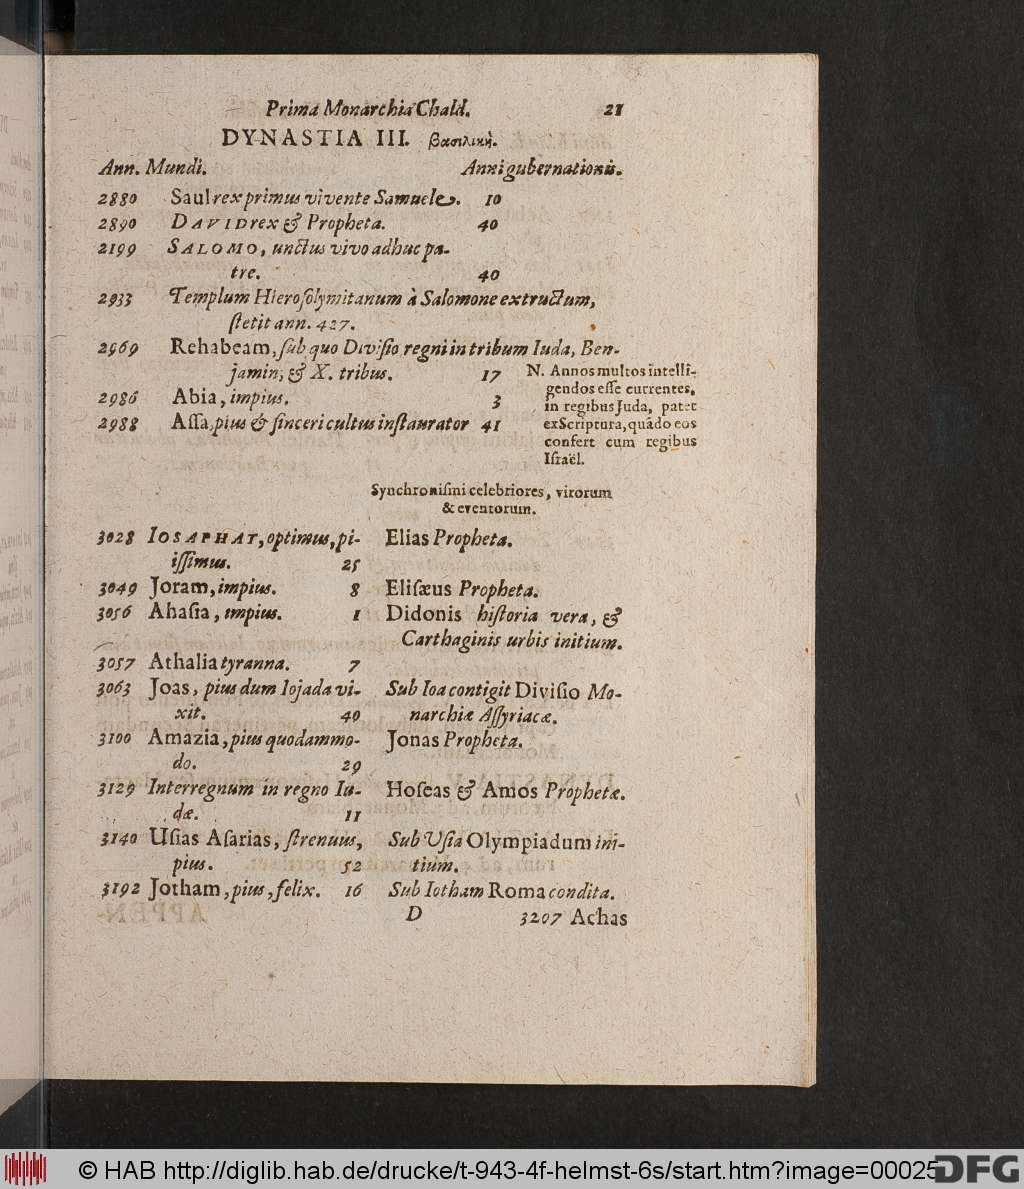 Prima Monarchia Chald. 21
DYNASTIA III. βασιλικὴ.
Ann. Mundi. Anni gubernationis.
2880 Saul rex primus vivente Samuele. 10
2890 DAVID rex & Propheta. 40
2199 SALOMO, unctus vivo adhuc pa-
tre. 40
2933 Templum Hierosolymitanum à Salomone extructum,
stetit ann. 427.
2969 Rehabeam, sub quo Divisio regni in tribum Iuda, Ben-
jamin, & X. tribus. 17
2986 Abia, impius. 3
2988 Assa, pius & sinceri cultus instaurator 41
N. Annos multos intelli-
gendos esse currentes,
in regibus Juda, patet
ex Scriptura, quãdo eos
confert cum regibus
Israël.
Synchronismi celebriores, virorum
& eventorum.
3028 IOSAPHAT, optimus, pi- Elias Propheta.
issimus. 25
3049 Joram, impius. 8 Elisæus Propheta.
3056 Ahasia, impius. 1 Didonis historia vera, &
Carthaginis urbis initium.
3057 Athalia tyranna. 7
3063 Joas, pius dum Iojada vi- Sub Ioa contigit Divisio Mo-
xit. 40 narchiæ Assyriacæ.
3100 Amazia, pius quodammo- Jonas Propheta.
do. 29
3129 Interregnum in regno Iu- Hoseas & Amos Prophetæ.
dæ. 11
3140 Usias Asarias, strenuus, Sub Usia Olympiadum ini-
pius. 52 tium.
3192 Jotham, pius, felix. 16 Sub Iotham Roma condita.
D 3207 Achas
© HAB http://diglib.hab.de/drucke/t-943-4f-helmst-6s/start.htm?image=00025
DFG